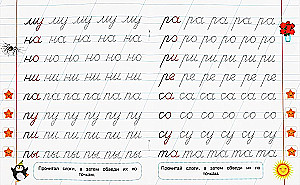 му му му му му
на на на на на
но но но но но
ни ни ни ни ни
па па па па па
пу пу пу пу пу
пи пи пи пи пи
пы пы пы пы пы
Прочитай слоги, а затем обведи их по
точкам.
ра ра ра ра ра
ро ро ро ро ро
ри ри ри ри ри
ре ре ре ре ре
са са са са са
со со со со со
су су су су су
та та та та та
Прочитай слоги, а затем обведи их по
точкам.